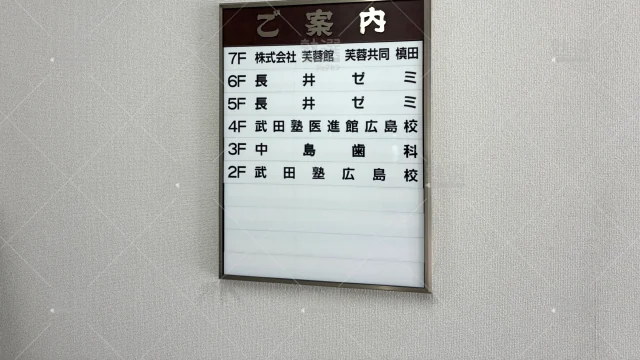 ご案内
7F 株式会社 芙蓉館 芙蓉共同 槙田
6F 長井ゼミ
5F 長井ゼミ
4F 武田塾医進館広島校
3F 中島歯科
2F 武田塾広島校